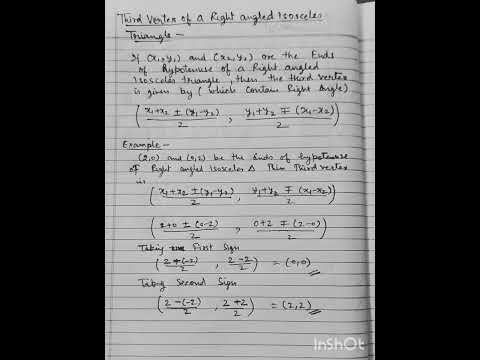 Third Vertex of a Right angled Isosceles
Triangle -
If (x₁,y₁) and (x₂,y₂) are the Ends
of Hypotenuse of a Right angled
Isosceles triangle, then the third vertex
is given by (which contain Right Angle)
( x₁+x₂ ± (y₁-y₂) / 2 , y₁+y₂ ∓ (x₁-x₂) / 2 )
Example -
(2,0) and (0,2) be the Ends of hypotenuse
of Right angled Isosceles Δ Then Third vertex
is
( x₁+x₂ ± (y₁-y₂) / 2 , y₁+y₂ ∓ (x₁-x₂) / 2 )
( 2+0 ± (0-2) / 2 , 0+2 ∓ (2-0) / 2 )
Taking First Sign
( 2+(-2) / 2 , 2-2 / 2 ) = (0,0)
Taking Second Sign
( 2-(-2) / 2 , 2+2 / 2 ) = (2,2)
InShOt